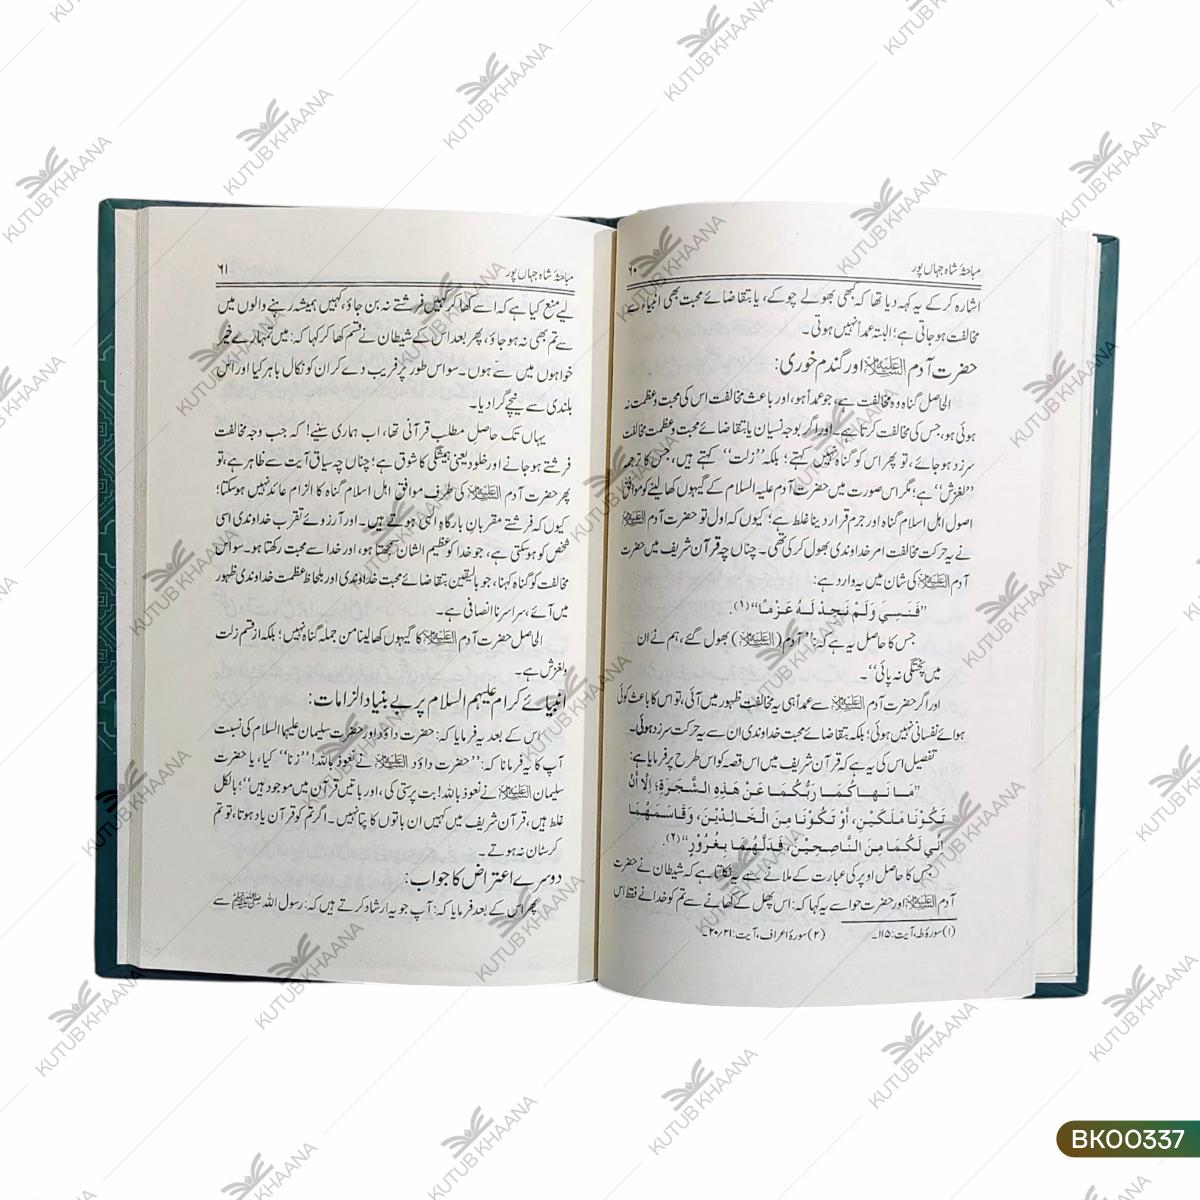 مباحثۂ شاہ جہاں پور ۶۰
اشارہ کرکے یہ کہہ دیا تھا کہ کبھی بھولے چوکے، یا بتقاضائے محبت بھی انبیاء سے
مخالفت ہوجاتی ہے؛ البتہ عمداً نہیں ہوتی۔
حضرت آدم علیہ السلام اور گندم خوری:
الحاصل گناہ وہ مخالفت ہے، جو عمداً ہو، اور باعث مخالفت اس کی محبت و عظمت نہ
ہوئی ہو، جس کی مخالفت کرتا ہے۔ اور اگر بوجہ نسیان یا بتقاضائے محبت و عظمت مخالفت
سرزد ہوجائے، تو پھر اس کو گناہ نہیں کہتے؛ بلکہ ’’زلت‘‘ کہتے ہیں، جس کا ترجمہ
’’لغزش‘‘ ہے؛ مگر اس صورت میں حضرت آدم علیہ السلام کے گیہوں کھا لینے کو موافق
اصول اہل اسلام گناہ اور جرم قرار دینا غلط ہے؛ کیوں کہ اول تو حضرت آدم علیہ السلام
نے یہ حرکت مخالفت امر خداوندی بھول کر کی تھی۔ چناں چہ قرآن شریف میں حضرت
آدم علیہ السلام کی شان میں یہ وارد ہے:
”فَنَسِيَ وَلَمْ نَجِدْ لَهُ عَزْمًا“ (۱)۔
جس کا حاصل یہ ہے کہ: ’’آدم (علیہ السلام) بھول گئے، ہم نے ان
میں پختگی نہ پائی‘‘۔
اور اگر حضرت آدم علیہ السلام سے عمداً ہی یہ مخالفت ظہور میں آئی، تو اس کا باعث کوئی
ہوائے نفسانی نہیں ہوئی؛ بلکہ بتقاضائے محبت خداوندی ان سے یہ حرکت سرزد ہوئی۔
تفصیل اس کی یہ ہے کہ قرآن شریف میں اس قصہ کو اس طرح پر فرمایا ہے:
”مَا نَهَاكُمَا رَبُّكُمَا عَنْ هَذِهِ الشَّجَرَةِ؛ إِلَّا أَنْ
تَكُوْنَا مَلَكَيْنِ، أَوْ تَكُوْنَا مِنَ الْخَالِدَيْنَ، وَقَاسَمَهُمَا
اِنِّي لَكُمَا مِنَ النَّاصِحِيْنَ، فَدَلَّهُمَا بِغُرُوْرٍ“ (۲)۔
جس کا حاصل اوپر کی عبارت کے ملانے سے یہ نکلتا ہے کہ شیطان نے حضرت
آدم علیہ السلام اور حضرت حوا سے یہ کہا کہ: اس پھل کے کھانے سے تم کو خدا نے فقط اس
(۱) سورۂ طہ، آیت: ۱۱۵۔ (۲) سورۂ اعراف، آیت: ۲۰/۲۱۔
مباحثۂ شاہ جہاں پور ۶۱
لیے منع کیا ہے کہ اسے کھا کر کہیں فرشتے نہ بن جاؤ، کہیں ہمیشہ رہنے والوں میں
سے تم بھی نہ ہوجاؤ، پھر بعد اس کے شیطان نے قسم کھا کر کہا کہ: میں تمہارے خیر
خواہوں میں سے ہوں۔ سو اس طور پر فریب دے کر ان کو نکال باہر کیا اور اس
بلندی سے نیچے گرا دیا۔
یہاں تک حاصل مطلب قرآنی تھا، اب ہماری سنیے! کہ جب وجہ مخالفت
فرشتے ہوجانے اور خلود یعنی ہمیشگی کا شوق ہے؛ چناں چہ سیاق آیت سے ظاہر ہے، تو
پھر حضرت آدم علیہ السلام کی طرف موافق اہل اسلام گناہ کا الزام عائد نہیں ہوسکتا؛
کیوں کہ فرشتے مقربان بارگاہ الٰہی ہوتے ہیں۔ اور آرزوئے تقرب خداوندی اسی
شخص کو ہوسکتی ہے، جو خدا کو عظیم الشان سمجھتا ہو، اور خدا سے محبت رکھتا ہو۔ سو اس
مخالفت کو گناہ کہنا، جو بالیقین بتقاضائے محبت خداوندی اور بلحاظ عظمت خداوندی ظہور
میں آئے، سراسر نا انصافی ہے۔
الحاصل حضرت آدم علیہ السلام کا گیہوں کھا لینا من جملہ گناہ نہیں؛ بلکہ از قسم زلت
ولغزش ہے۔
انبیائے کرام علیہم السلام پر بے بنیاد الزامات:
اس کے بعد یہ فرمایا کہ: حضرت داؤد اور حضرت سلیمان علیہما السلام کی نسبت
آپ کا یہ فرمانا کہ: ’’حضرت داؤد علیہ السلام نے نعوذ باللہ! ’’زنا‘‘ کیا، یا حضرت
سلیمان علیہ السلام نے نعوذ باللہ! بت پرستی کی، اور یہ باتیں قرآن میں موجود ہیں‘‘؛ بالکل
غلط ہیں، قرآن شریف میں کہیں ان باتوں کا پتا نہیں۔ اگر تم کو قرآن یاد ہوتا، تو تم
کرسٹان نہ ہوتے۔
دوسرے اعتراض کا جواب:
پھر اس کے بعد فرمایا کہ: آپ جو یہ ارشاد کرتے ہیں کہ: رسول اللہ صلی اللہ علیہ وسلم سے
KUTUB KHAANA
BK00337